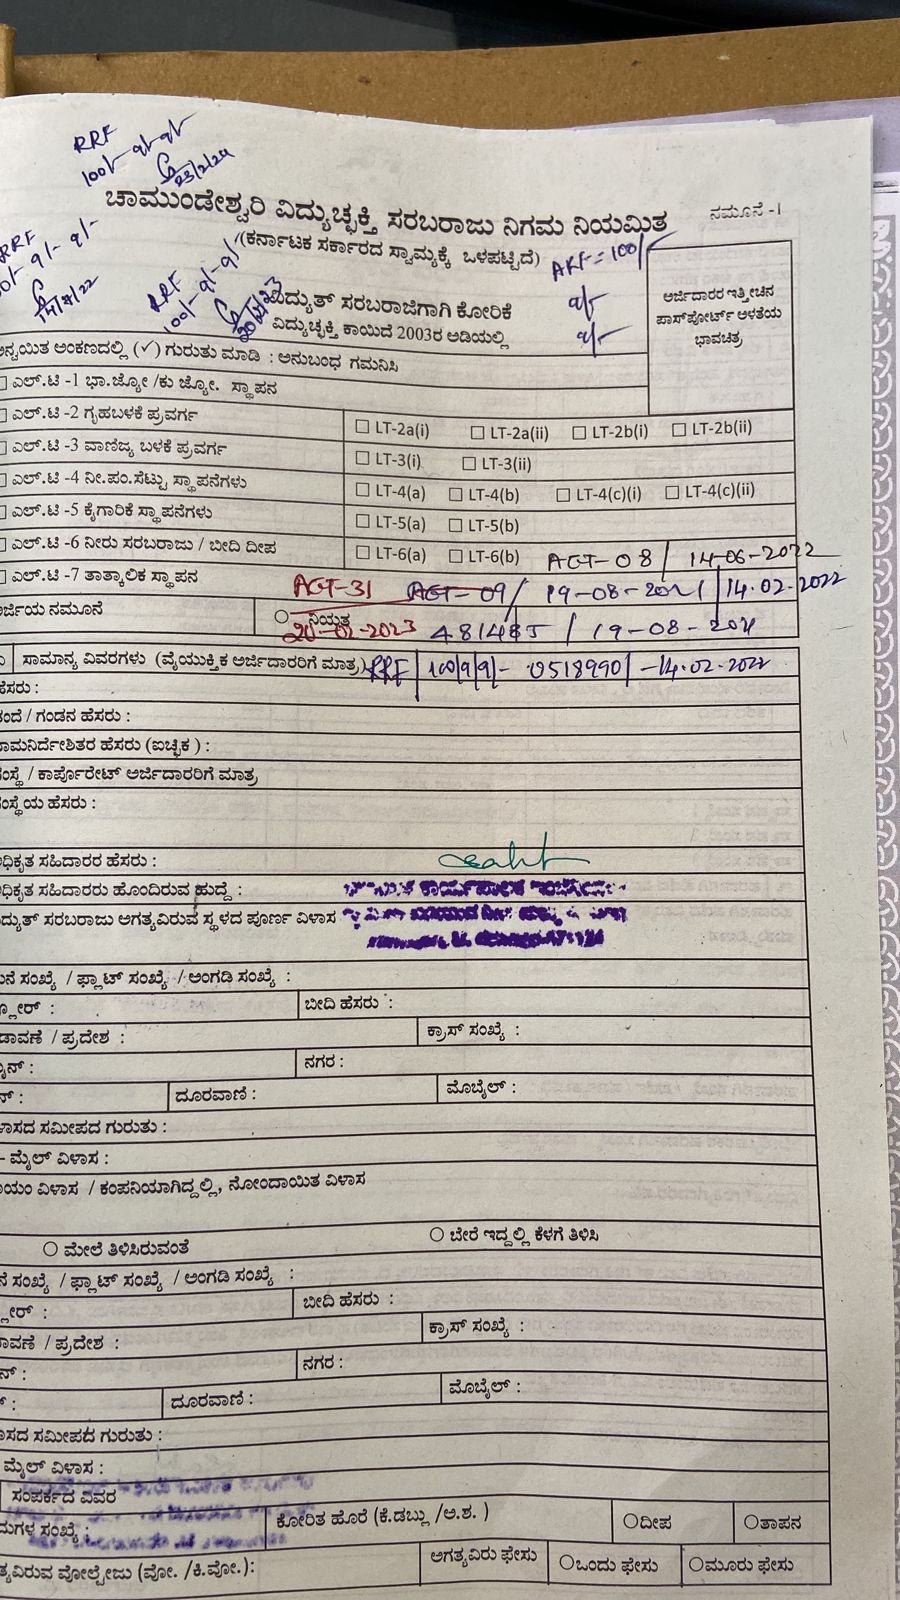 RRF
100/- 9/- 9/-
23/2/24
ಚಾಮುಂಡೇಶ್ವರಿ ವಿದ್ಯುಚ್ಛಕ್ತಿ ಸರಬರಾಜು ನಿಗಮ ನಿಯಮಿತ
ನಮೂನೆ -I
(ಕರ್ನಾಟಕ ಸರ್ಕಾರದ ಸ್ವಾಮ್ಯಕ್ಕೆ ಒಳಪಟ್ಟಿದೆ)
RRF
9/- 9/-
22
RRF
100/- 9/- 9/-
100/-
9/-
9/-
ವಿದ್ಯುತ್ ಸರಬರಾಜಿಗಾಗಿ ಕೋರಿಕೆ
ವಿದ್ಯುಚ್ಛಕ್ತಿ ಕಾಯಿದೆ 2003ರ ಅಡಿಯಲ್ಲಿ
ಅರ್ಜಿದಾರರ ಇತ್ತೀಚಿನ
ಪಾಸ್‌ಪೋರ್ಟ್ ಅಳತೆಯ
ಭಾವಚಿತ್ರ
ಅನ್ವಯಿತ ಅಂಕಣದಲ್ಲಿ (✓) ಗುರುತು ಮಾಡಿ : ಅನುಬಂಧ ಗಮನಿಸಿ
☐ ಎಲ್.ಟಿ -1 ಭಾ.ಜ್ಯೋ /ಕು ಜ್ಯೋ. ಸ್ಥಾಪನ
☐ ಎಲ್.ಟಿ -2 ಗೃಹಬಳಕೆ ಪ್ರವರ್ಗ ☐ LT-2a(i) ☐ LT-2a(ii) ☐ LT-2b(i) ☐ LT-2b(ii)
☐ ಎಲ್.ಟಿ -3 ವಾಣಿಜ್ಯ ಬಳಕೆ ಪ್ರವರ್ಗ ☐ LT-3(i) ☐ LT-3(ii)
☐ ಎಲ್.ಟಿ -4 ನೀ.ಪಂ.ಸೆಟ್ಟು ಸ್ಥಾಪನೆಗಳು ☐ LT-4(a) ☐ LT-4(b) ☐ LT-4(c)(i) ☐ LT-4(c)(ii)
☐ ಎಲ್.ಟಿ -5 ಕೈಗಾರಿಕೆ ಸ್ಥಾಪನೆಗಳು ☐ LT-5(a) ☐ LT-5(b)
☐ ಎಲ್.ಟಿ -6 ನೀರು ಸರಬರಾಜು / ಬೀದಿ ದೀಪ ☐ LT-6(a) ☐ LT-6(b) AGT-08 / 14-06-2022
☐ ಎಲ್.ಟಿ -7 ತಾತ್ಕಾಲಿಕ ಸ್ಥಾಪನ AGT-31 AGT-09/ 19-08-2021 / 14.02.2022
ಅರ್ಜಿಯ ನಮೂನೆ ○ ನಿಯತ 20-02-2023 481485 / 19-08-2021
ಸಾಮಾನ್ಯ ವಿವರಗಳು (ವೈಯುಕ್ತಿಕ ಅರ್ಜಿದಾರರಿಗೆ ಮಾತ್ರ) RRF | 100/9/9/- 0518990/ -14.02.2022
ಹೆಸರು :
ತಂದೆ / ಗಂಡನ ಹೆಸರು :
ನಾಮನಿರ್ದೇಶಿತರ ಹೆಸರು (ಐಚ್ಛಿಕ) :
ಸಂಸ್ಥೆ / ಕಾರ್ಪೊರೇಟ್ ಅರ್ಜಿದಾರರಿಗೆ ಮಾತ್ರ
ಸಂಸ್ಥೆಯ ಹೆಸರು :
ಅಧಿಕೃತ ಸಹಿದಾರರ ಹೆಸರು :
ಅಧಿಕೃತ ಸಹಿದಾರರು ಹೊಂದಿರುವ ಹುದ್ದೆ :
ವಿದ್ಯುತ್ ಸರಬರಾಜು ಅಗತ್ಯವಿರುವ ಸ್ಥಳದ ಪೂರ್ಣ ವಿಳಾಸ
ಮನೆ ಸಂಖ್ಯೆ / ಫ್ಲಾಟ್ ಸಂಖ್ಯೆ / ಅಂಗಡಿ ಸಂಖ್ಯೆ :
ಫ್ಲೋರ್ : ಬೀದಿ ಹೆಸರು :
ಬಡಾವಣೆ / ಪ್ರದೇಶ : ಕ್ರಾಸ್ ಸಂಖ್ಯೆ :
ನಗರ :
ದೂರವಾಣಿ : ಮೊಬೈಲ್ :
ವಿಳಾಸದ ಸಮೀಪದ ಗುರುತು :
ಇ-ಮೈಲ್ ವಿಳಾಸ :
ಖಾಯಂ ವಿಳಾಸ / ಕಂಪನಿಯಾಗಿದ್ದಲ್ಲಿ, ನೋಂದಾಯಿತ ವಿಳಾಸ
○ ಮೇಲೆ ತಿಳಿಸಿರುವಂತೆ ○ ಬೇರೆ ಇದ್ದಲ್ಲಿ ಕೆಳಗೆ ತಿಳಿಸಿ
ಮನೆ ಸಂಖ್ಯೆ / ಫ್ಲಾಟ್ ಸಂಖ್ಯೆ / ಅಂಗಡಿ ಸಂಖ್ಯೆ :
ಫ್ಲೋರ್ : ಬೀದಿ ಹೆಸರು :
ಬಡಾವಣೆ / ಪ್ರದೇಶ : ಕ್ರಾಸ್ ಸಂಖ್ಯೆ :
ನಗರ :
ದೂರವಾಣಿ : ಮೊಬೈಲ್ :
ವಿಳಾಸದ ಸಮೀಪದ ಗುರುತು :
ಮೈಲ್ ವಿಳಾಸ :
ಸಂಪರ್ಕದ ವಿವರ
ಸಂಖ್ಯೆ : ಕೋರಿತ ಹೊರೆ (ಕೆ.ಡಬ್ಲು /ಅ.ಶ. ) ○ದೀಪ ○ತಾಪನ
ಅಗತ್ಯವಿರುವ ವೋಲ್ಟೇಜು (ವೋ. /ಕಿ.ವೋ.): ಅಗತ್ಯವಿರು ಫೇಸು ○ಒಂದು ಫೇಸು ○ಮೂರು ಫೇಸು